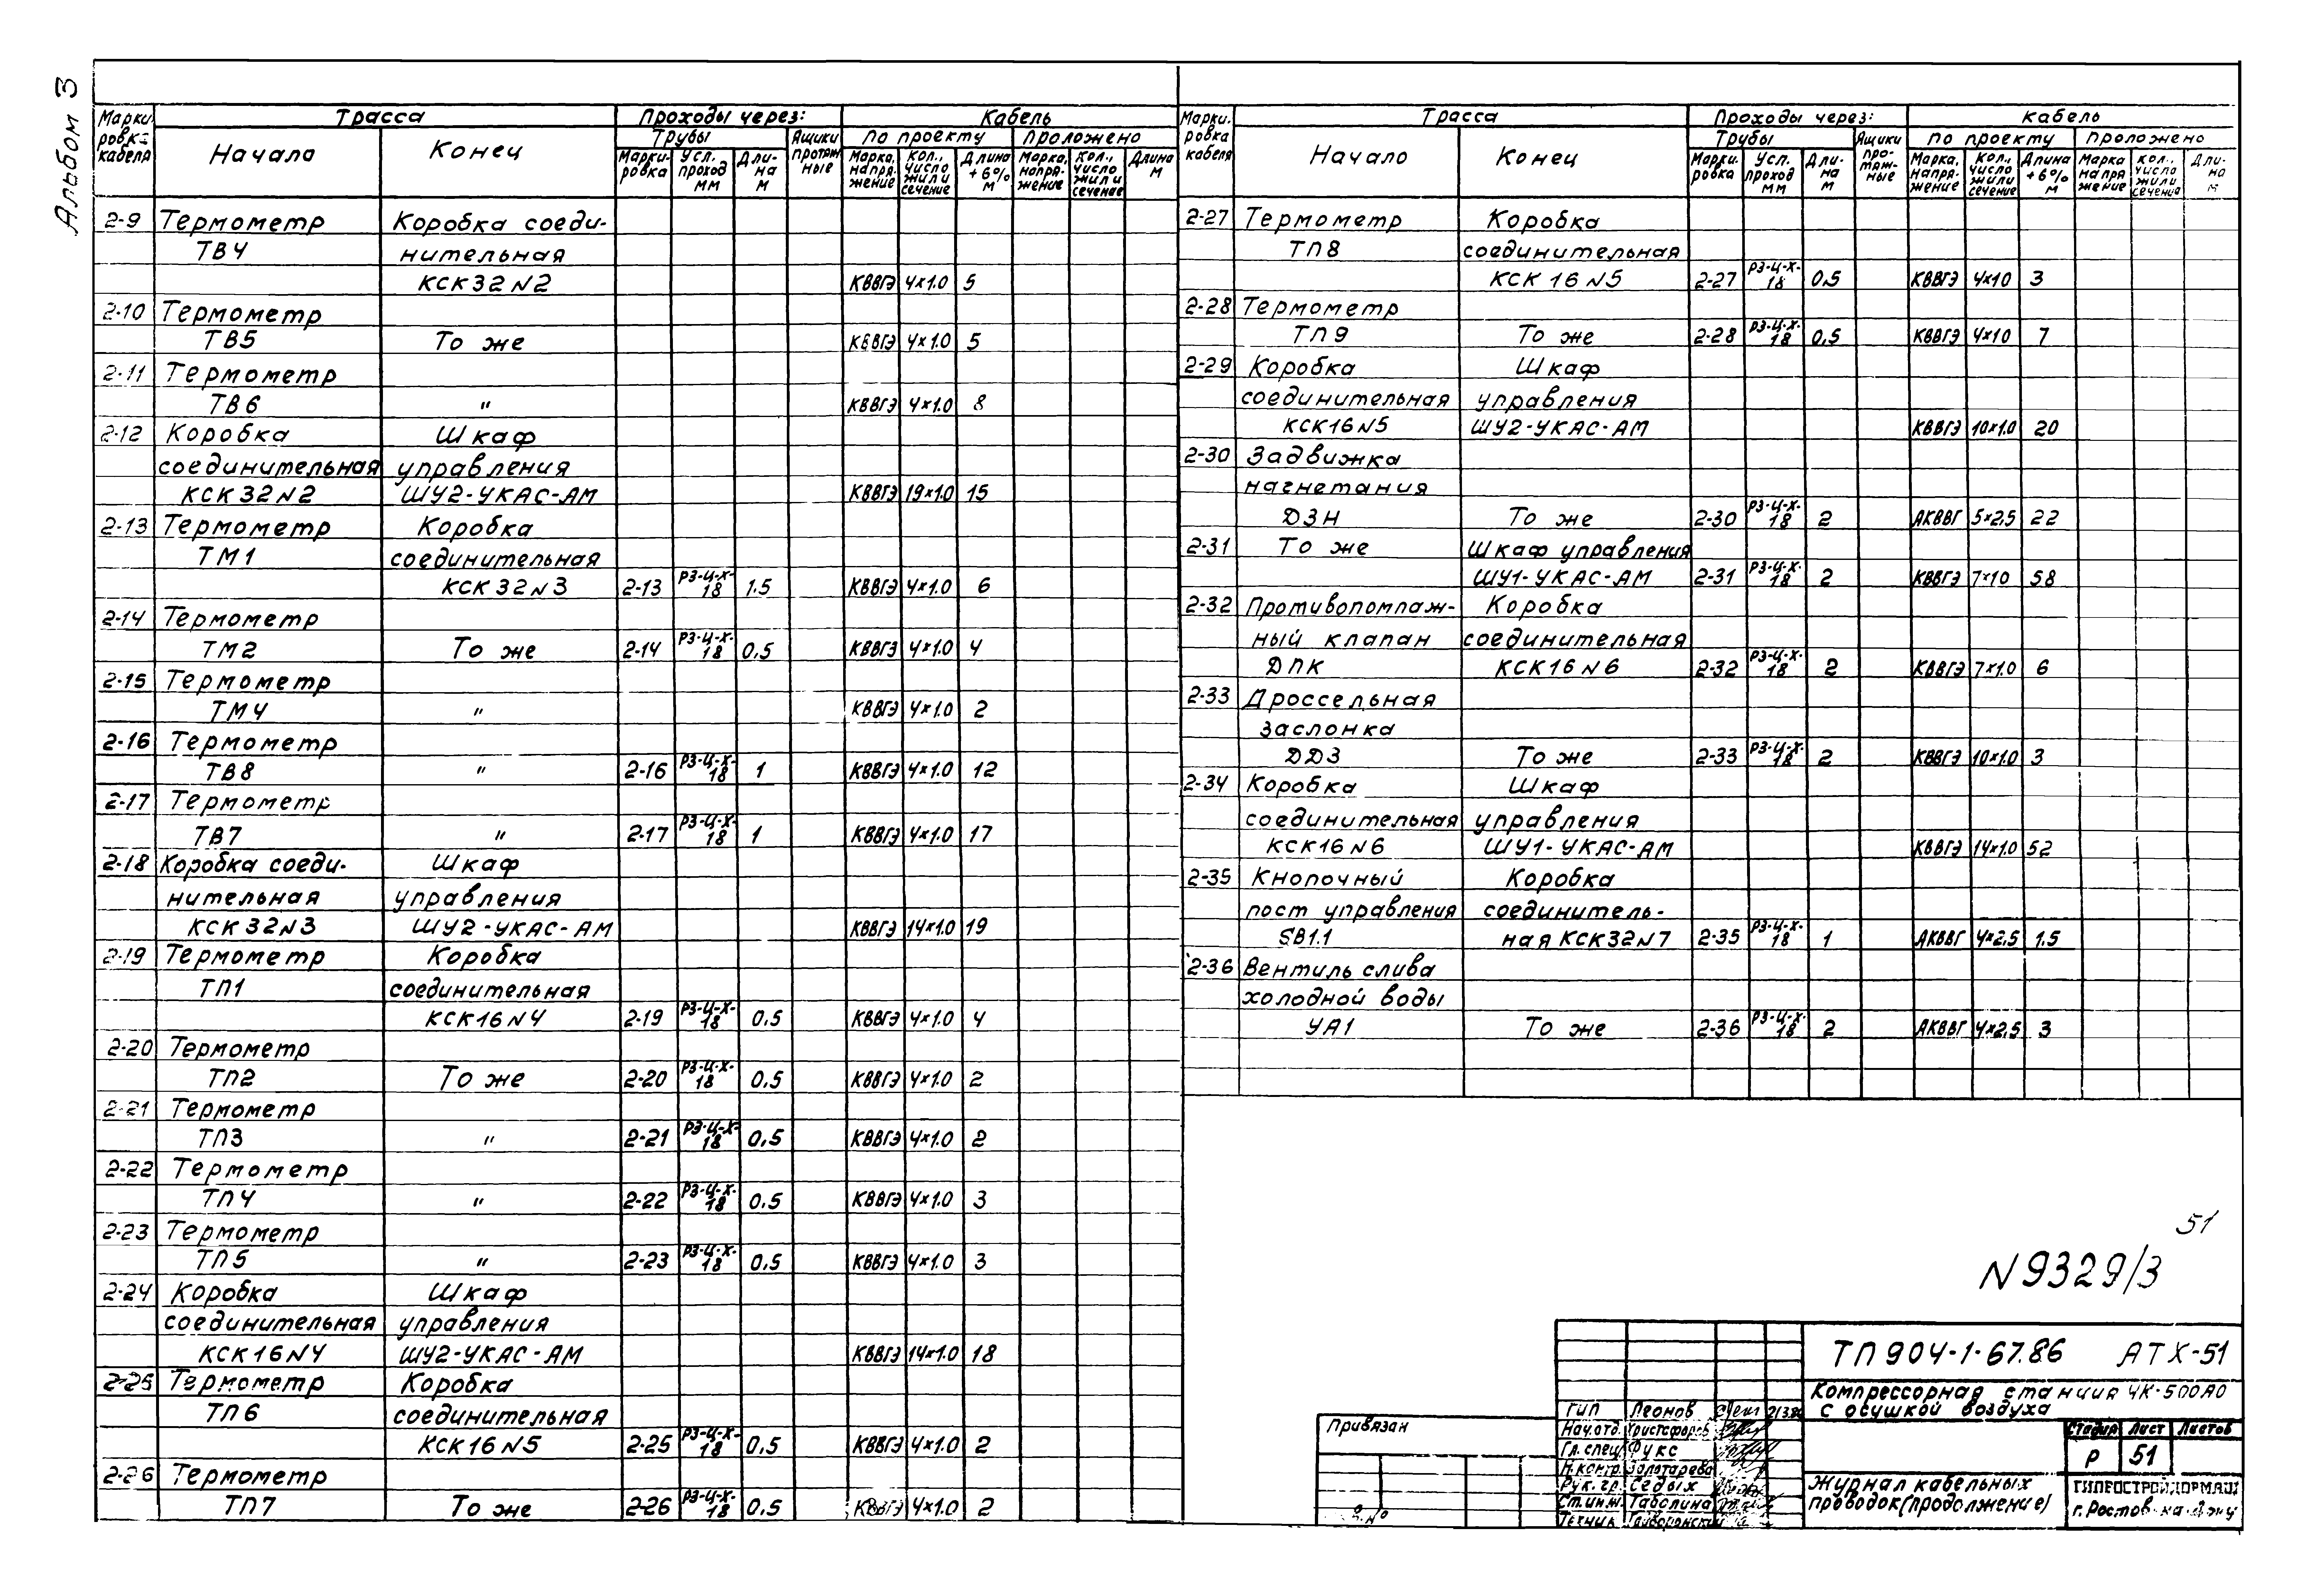 Альбом 3
Марки- ровка кабеля | Трасса | Проходы через: | Кабель
Начало | Конец | Трубы | Ящики протяж- ные | по проекту | Проложено
Марки- ровка | Усл. проход мм | Дли- на м | Марка, напря- жение | Кол., число жил и сечение | Длина +6% м | Марка, напря- жение | Кол., число жил и сечение | Длина м
2-9 Термометр Коробка соеди-
ТВ4 нительная
КСК32N2 КВВГЭ 4×1.0 5
2-10 Термометр
ТВ5 То же КВВГЭ 4×1.0 5
2-11 Термометр
ТВ6 " КВВГЭ 4×1.0 8
2-12 Коробка Шкаф
соединительная управления
КСК32N2 ШУ2-УКАС-АМ КВВГЭ 19×1.0 15
2-13 Термометр Коробка
ТМ1 соединительная
КСК32N3 2-13 РЗ-Ц-Х-18 1.5 КВВГЭ 4×1.0 6
2-14 Термометр
ТМ2 То же 2-14 РЗ-Ц-Х-18 0.5 КВВГЭ 4×1.0 4
2-15 Термометр
ТМ4 " КВВГЭ 4×1.0 2
2-16 Термометр
ТВ8 " 2-16 РЗ-Ц-Х-18 1 КВВГЭ 4×1.0 12
2-17 Термометр
ТВ7 " 2-17 РЗ-Ц-Х-18 1 КВВГЭ 4×1.0 17
2-18 Коробка соеди- Шкаф
нительная управления
КСК32N3 ШУ2-УКАС-АМ КВВГЭ 14×1.0 19
2-19 Термометр Коробка
ТП1 соединительная
КСК16N4 2-19 РЗ-Ц-Х-18 0.5 КВВГЭ 4×1.0 4
2-20 Термометр
ТП2 То же 2-20 РЗ-Ц-Х-18 0.5 КВВГЭ 4×1.0 2
2-21 Термометр
ТП3 " 2-21 РЗ-Ц-Х-18 0.5 КВВГЭ 4×1.0 2
2-22 Термометр
ТП4 " 2-22 РЗ-Ц-Х-18 0.5 КВВГЭ 4×1.0 3
2-23 Термометр
ТП5 " 2-23 РЗ-Ц-Х-18 0.5 КВВГЭ 4×1.0 3
2-24 Коробка Шкаф
соединительная управления
КСК16N4 ШУ2-УКАС-АМ КВВГЭ 14×1.0 18
2-25 Термометр Коробка
ТП6 соединительная
КСК16N5 2-25 РЗ-Ц-Х-18 0.5 КВВГЭ 4×1.0 2
2-26 Термометр
ТП7 То же 2-26 РЗ-Ц-Х-18 0.5 КВВГЭ 4×1.0 2
Марки- ровка кабеля | Трасса | Проходы через: | Кабель
Начало | Конец | Трубы | Ящики про- тяж- ные | по проекту | Проложено
Марки- ровка | Усл. проход мм | Дли- на м | Марка, напря- жение | Кол., число жил и сечение | Длина +6% м | Марка напря жение | кол., число жил и сечение | Дли- на м
2-27 Термометр Коробка
ТП8 соединительная
КСК 16 N5 2-27 РЗ-Ц-Х-18 0.5 КВВГЭ 4×10 3
2-28 Термометр
ТП9 То же 2-28 РЗ-Ц-Х-18 0.5 КВВГЭ 4×10 7
2-29 Коробка Шкаф
соединительная управления
КСК16N5 ШУ2-УКАС-АМ КВВГЭ 10×1.0 20
2-30 Задвижка
нагнетания
ДЗН То же 2-30 РЗ-Ц-Х-18 2 АКВВГ 5×2.5 22
2-31 То же Шкаф управления
ШУ1-УКАС-АМ 2-31 РЗ-Ц-Х-18 2 КВВГЭ 7×10 58
2-32 Противопомпаж- Коробка
ный клапан соединительная
ДПК КСК16N6 2-32 РЗ-Ц-Х-18 2 КВВГЭ 7×1.0 6
2-33 Дроссельная
заслонка
ДДЗ То же 2-33 РЗ-Ц-Х-18 2 КВВГЭ 10×1.0 3
2-34 Коробка Шкаф
соединительная управления
КСК16N6 ШУ1-УКАС-АМ КВВГЭ 14×1.0 52
2-35 Кнопочный Коробка
пост управления соединитель-
SB1.1 ная КСК32N7 2-35 РЗ-Ц-Х-18 1 АКВВГ 4×2.5 1.5
2-36 Вентиль слива
холодной воды
УА1 То же 2-36 РЗ-Ц-Х-18 2 АКВВГ 4×2.5 3
51
N9329/3
ТП 904-1-67.86 АТХ-51
Компрессорная станция ЧК-500А0
с осушкой воздуха
Привязан
ГИП Леонов
Нач.отд. Христофоров
Гл.спец. Фукс
Н.контр. Золотарева
Рук. гр. Седых
Ст.инж. Таболина
Техник
Стадия Лист Листов
Р 51
Журнал кабельных
проводок(продолжение)
ГИПРОСТРОЙДОРМАШ
г. Ростов-на-Дону